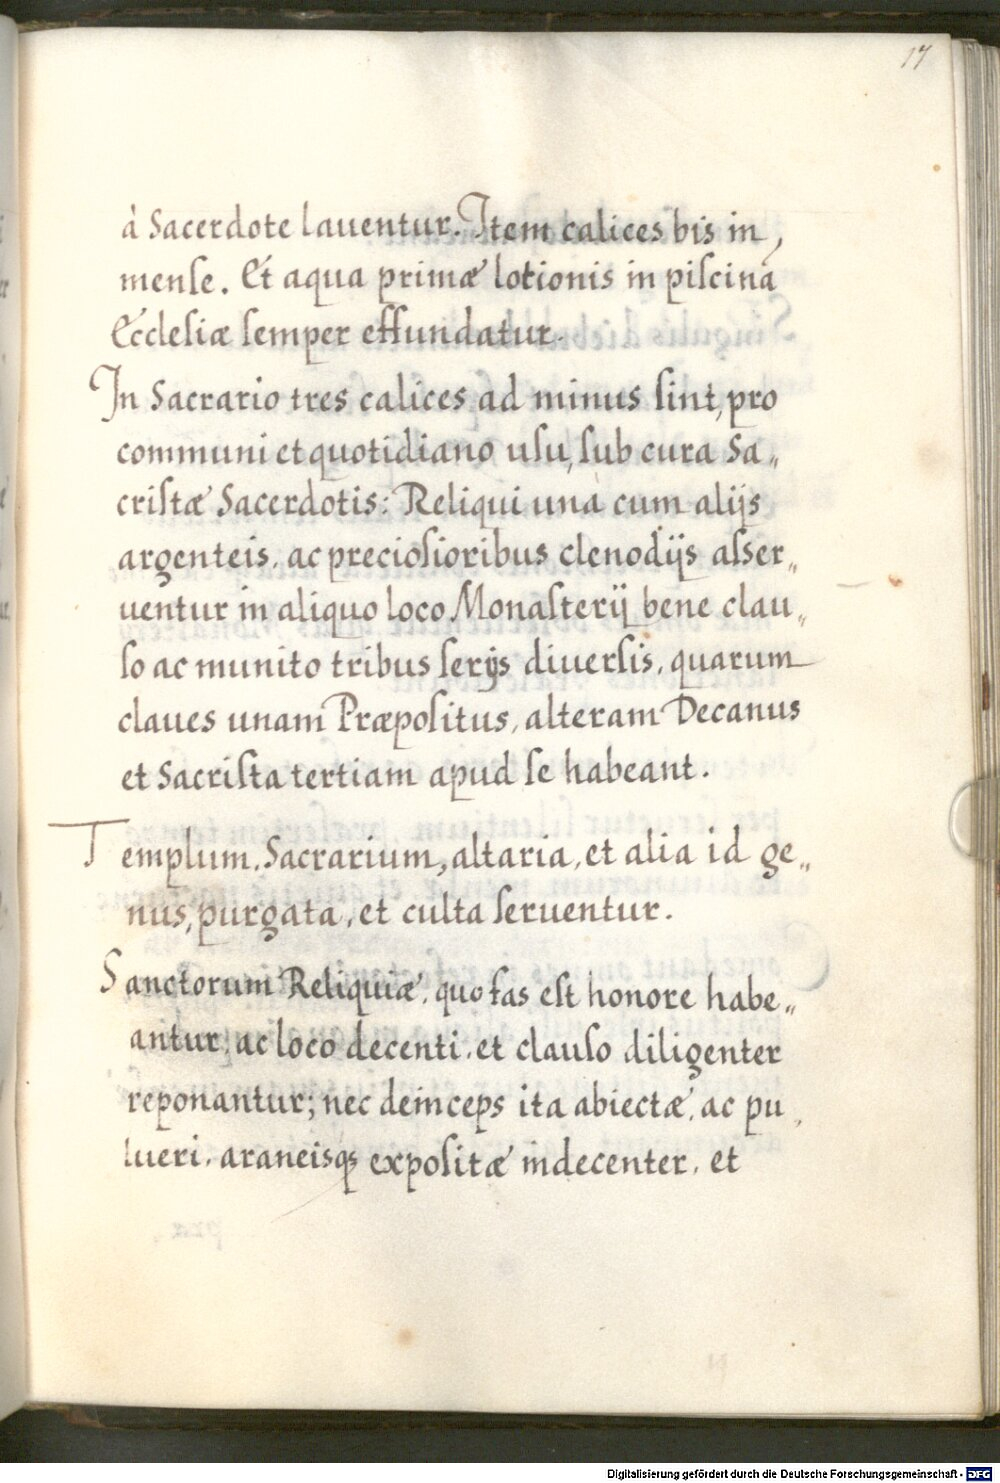 17
à Sacerdote lauentur. Item calices bis in
mense. Et aqua primæ lotionis in piscina
Ecclesiæ semper effundatur.
In Sacrario tres calices ad minus sint, pro
communi et quotidiano usu, sub cura Sa„
cristæ Sacerdotis: Reliqui unà cum alijs
argenteis, ac preciosioribus clenodijs asser„
uentur in aliquo loco Monasterij bene clau„
so ac munito tribus serijs diuersis, quarum
claues unam Præpositus, alteram Decanus
et Sacrista tertiam apud se habeant.
Templum, Sacrarium, altaria, et alia id ge„
nus, purgata, et culta seruentur.
Sanctorum Reliquiæ, quo fas est honore habe„
antur, ac loco decenti, et clauso diligenter
reponantur; nec deinceps ita abiectæ, ac pu„
lueri, araneisq; expositæ indecenter, et
Digitalisierung gefördert durch die Deutsche Forschungsgemeinschaft - DFG